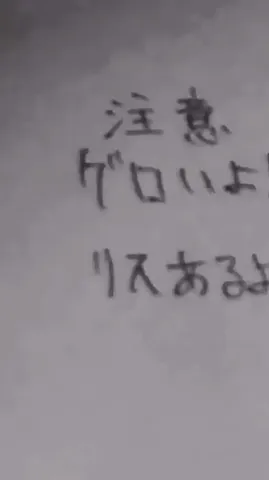 注意
グロいよ!
リスあるよ